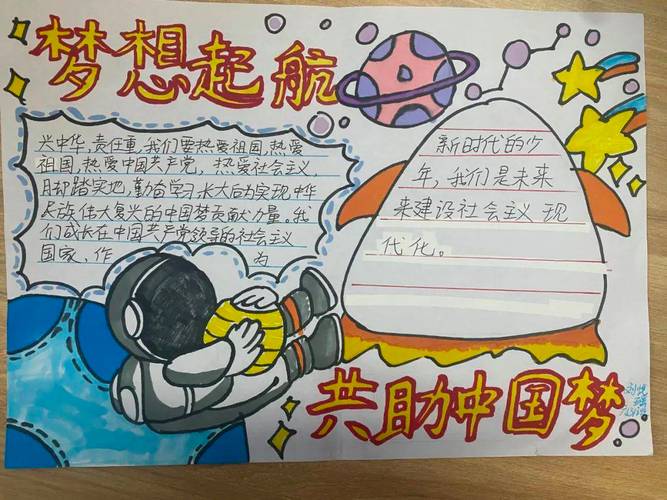 梦想起航
兴中华,责任重,我们要热爱祖国,热爱
祖国,热爱中国共产党,热爱社会主义,
脚踏实地,勤奋学习,长大后为实现中华
民族伟大复兴的中国梦贡献力量。我
们成长在中国共产党领导的社会主义
国家、作 为
新时代的少
年,我们是未来
来建设社会主义 现
代化。
共助中国梦